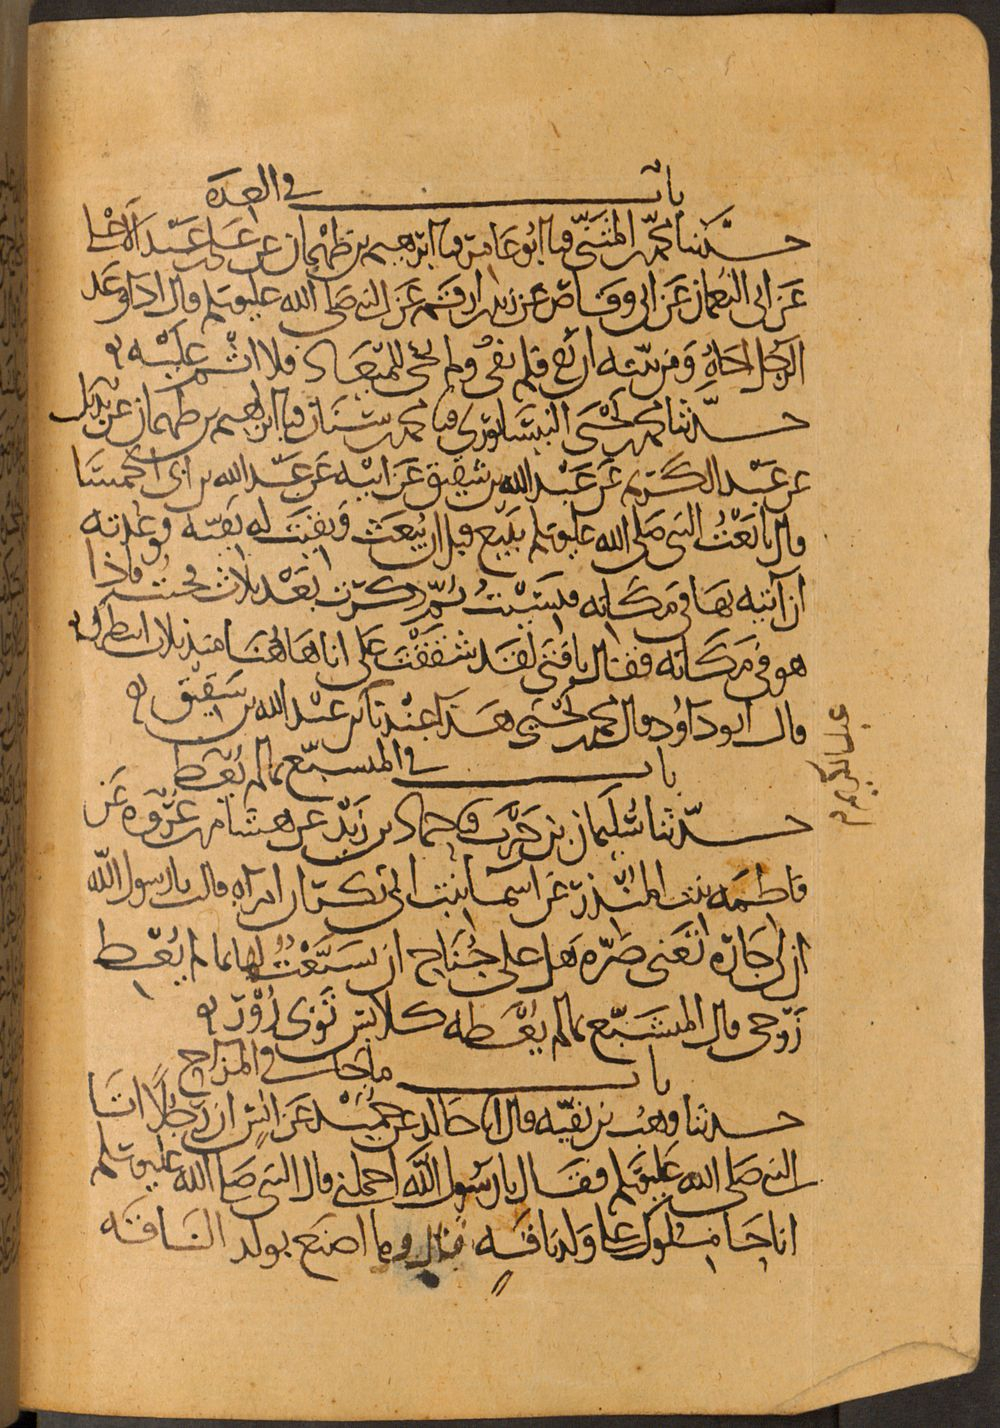 باب في العدة
حدثنا محمد المثنى نا ابو عامر نا ابرهيم بن طهمان عن على عبد الاعلى
عن ابى النعمان عن ابى وقاص عن زيد ارقم عن النبى صلى الله عليه وسلم قال اذا وعد
الرجل اخاه ومن نيته ان يفى فلم يفى ولم يجى للميعاد فلا اثم عليه
حدثنا محمد يحيى النيسابورى نا محمد سنان نا ابرهيم بن طهمان عن بديل
عن عبد الكريم عن عبد الله بن شقيق عن ابيه عن عبد الله بن ابى الحمسا
قال بايعت النبى صلى الله عليه وسلم ببيع قبل ان يبعث وبقيت له بقية فوعدته
ان آتيه بها فى مكانه فنسيت ثم ذكرت بعد ثلاث فجئت فاذا
هو فى مكانه فقال يا فتى لقد شققت على انا هاهنا منذ ثلاث انتظرك
قال ابو داود قال محمد يحيى هذا عندنا عبد الكريم بن عبد الله بن شقيق
باب في المتشبع بما لم يعط
حدثنا سليمان بن حرب نا حماد بن زيد عن هشام بن عروة عن
فاطمة بنت المنذر عن اسما بنت ابى بكر ان امراة قالت يا رسول الله
ان لى جارة تعنى ضرة هل على جناح ان تشبعت لها بما لم يعط
زوجى قال المتشبع بما لم يعطه كلابس ثوبى زور
باب ما جا في المزاح
حدثنا وهب بن بقية قال انا خالد عن حميد عن انس ان رجلا اتا
النبى صلى الله عليه وسلم فقال يا رسول الله احملنى قال النبى صلى الله عليه وسلم
انا حاملوك على ولد ناقة قال وما اصنع بولد الناقة